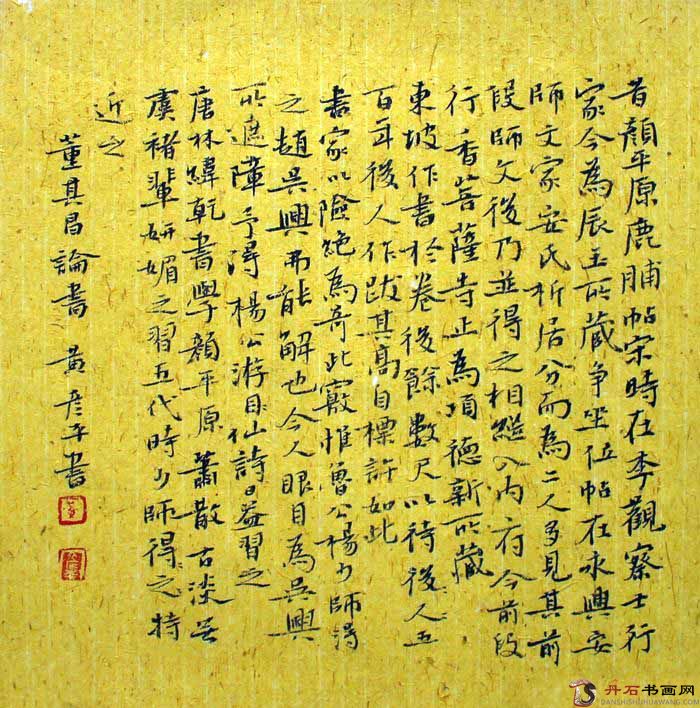 昔顏平原鹿脯帖宋時在李觀察士行
家今為辰玉所藏爭坐位帖在永興安
師文家安氏析居分而為二人多見其前
段師文後乃並得之相繼入內府今前段
行香菩薩寺止為項德新所藏
東坡作書於卷後餘數尺以待後人五
百年後人作跋其高自標許如此
書家以險絕為奇此竅惟魯公楊少師得
之趙吳興弗能解也今人眼目為吳興
所遮障予得楊公游目仙詩日益習之
唐林緯乾書學顏平原蕭散古淡無
虞褚輩妍媚之習五代時少師得之特
近之
董其昌論書 黃彥平書
丹石书画网
DANSHISHUHUAWANG.COM